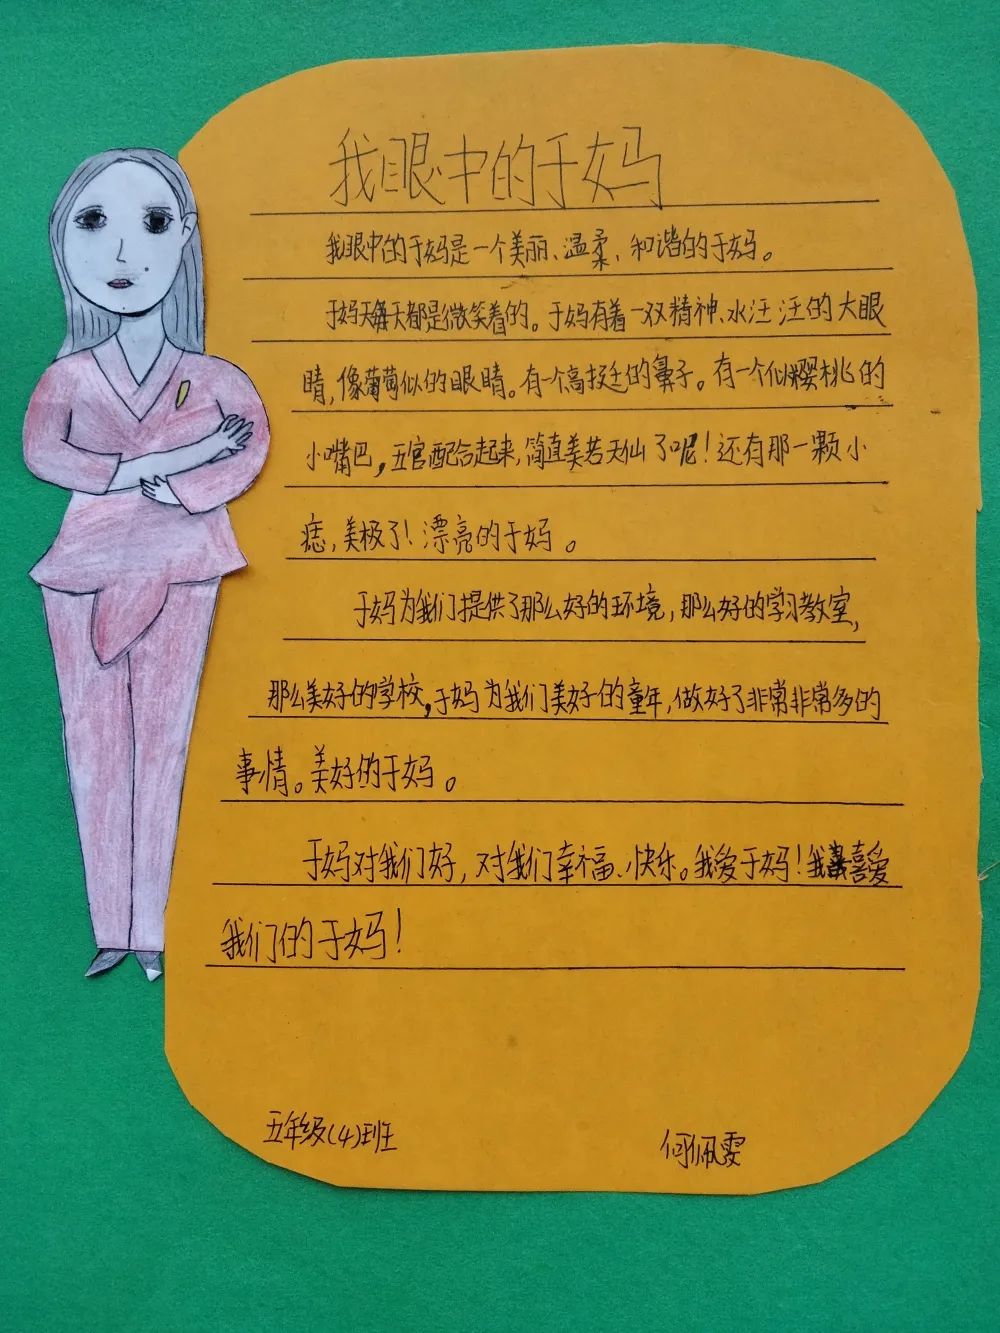 我眼中的于妈
我眼中的于妈是一个美丽、温柔、和谐的于妈。
于妈每天都是微笑着的。于妈有着一双精神、水汪汪的大眼
睛，像葡萄似的眼睛。有一个高挺的鼻子。有一个似樱桃的
小嘴巴，五官配合起来，简直美若天仙了呢！还有那一颗小
痣，美极了！漂亮的于妈。
于妈为我们提供了那么好的环境，那么好的学习教室，
那么美好的学校，于妈为我们美好的童年，做好了非常非常多的
事情。美好的于妈。
于妈对我们好，对我们幸福、快乐。我爱于妈！我喜爱
我们的于妈！
五年级(4)班
何佩雯